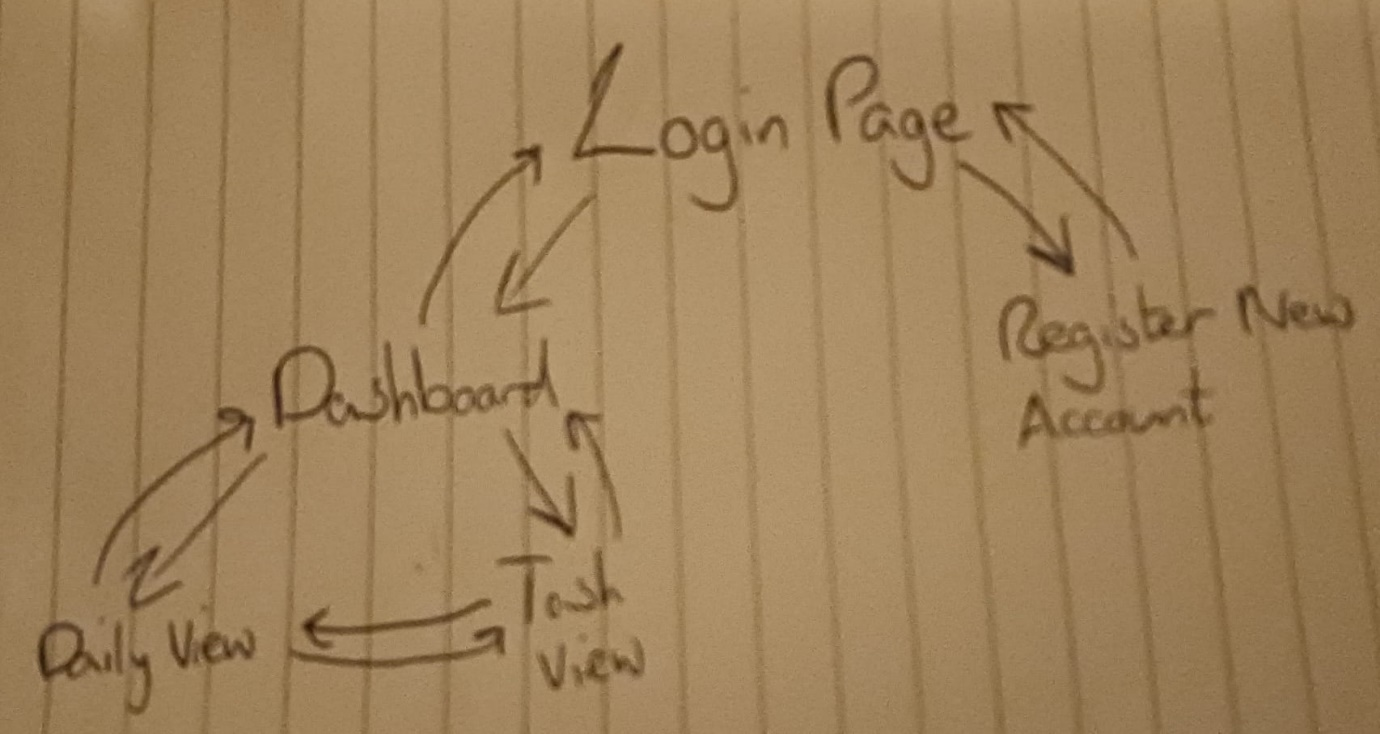 Login Page
Register New
Account
Dashboard
Daily View
Task
View